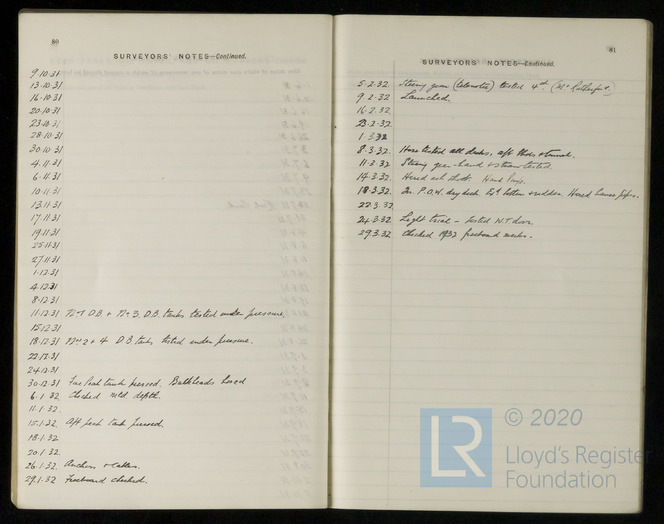 80
SURVEYORS' NOTES—Continued.
9.10.31
13.10.31
16.10.31
20.10.31
23.10.31
28.10.31
30.10.31
4.11.31
6.11.31
10.11.31
13.11.31
17.11.31
19.11.31
25.11.31
27.11.31
1.12.31
4.12.31
8.12.31
11.12.31 No 1 D.B. + No 3. D.B. tanks tested under pressure.
15.12.31
18.12.31 Nos 2 + 4 D.B. tanks tested under pressure.
22.12.31
24.12.31
30.12.31 Fore Peak tank pressed. Bulkheads hosed
6.1.32 Checked mld depth.
11.1.32.
15.1.32. Aft peak tank pressed.
18.1.32
20.1.32.
26.1.32. Anchors + cables.
29.1.32. Freeboard checked.
81
SURVEYORS' NOTES—Continued.
5.2.32. Steering gear (telemotor) tested
9.2.32 Launched.
16.2.32
23.2.32
1.3.32
8.3.32. Hose tested all decks, aft + tunnel.
11.3.32 Steering gear hand + steam tested.
14.3.32 Hosed ash Hand Pumps.
18.3.32 In P.O.W. dry dock. bottom + rudder. Hosed pipes.
22.3.32
24.3.32 Light trial – tested W.T. doors
29.3.32 Checked 1932 freeboard marks.
© 2020
LR
Lloyd's Register
Foundation